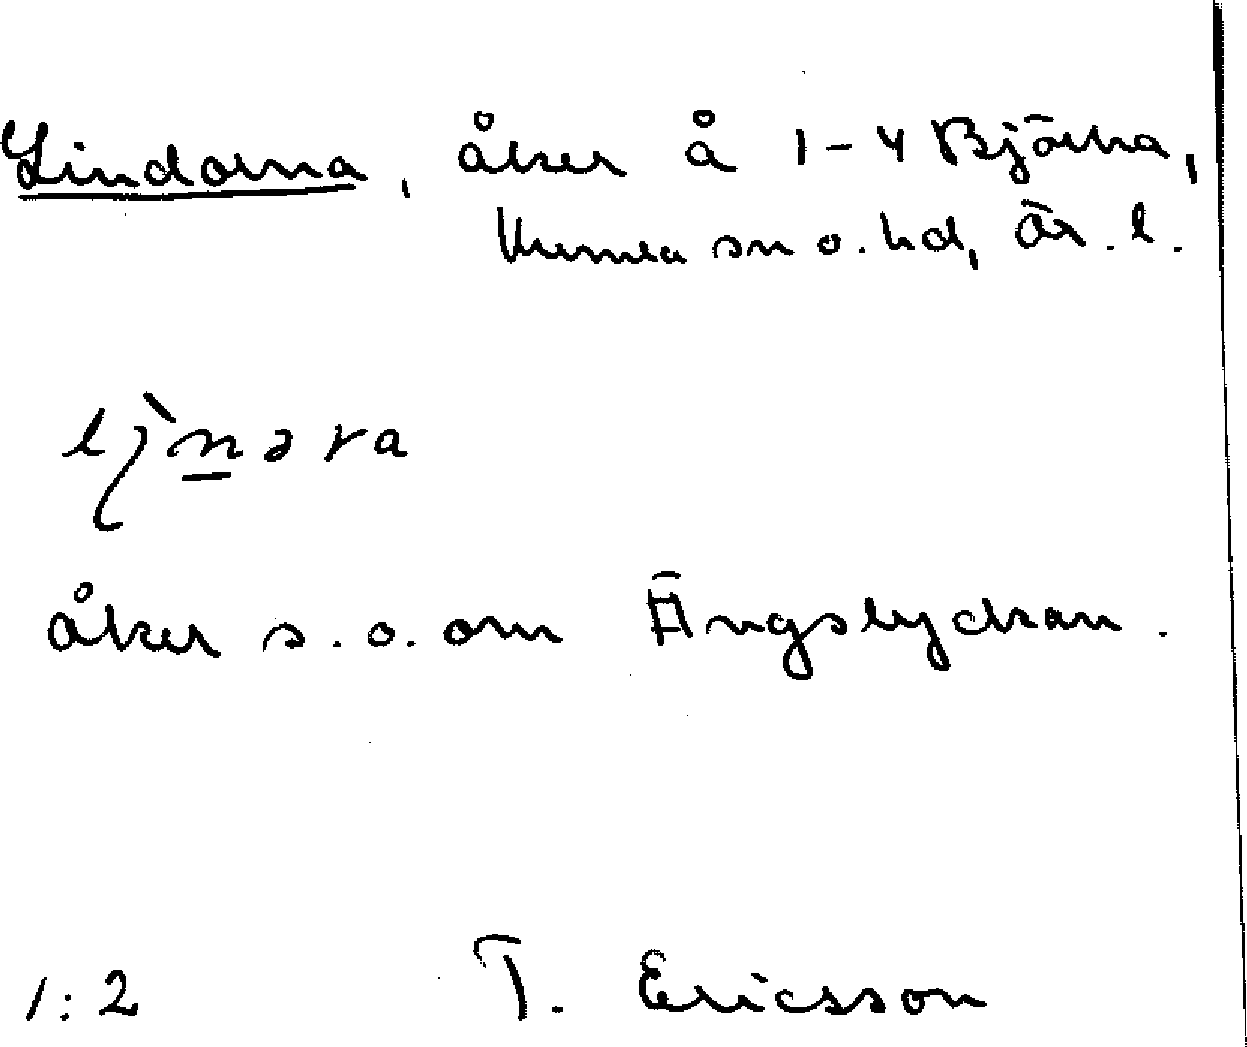 Lindorna, åker å 1-4 Björka,
Kumla sn o. hd, Ör. l.
åker s.o. om Ängslyckan.
1:2 T. Ericsson